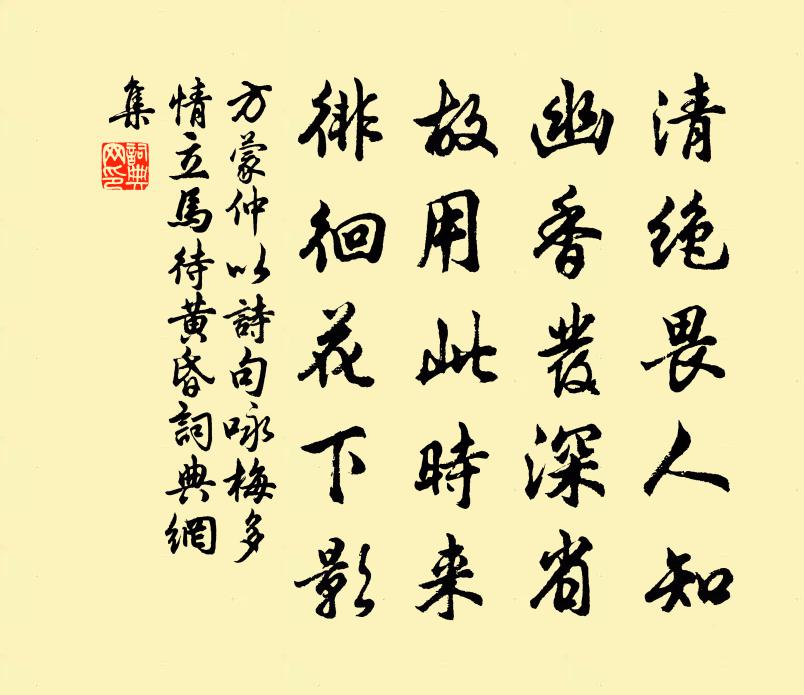 清絶畏人知
幽香發深省
故用此時来
徘徊花下影
方蒙仲以詩句咏梅多
情立馬待黄昏詞典網
集
詞典
网印